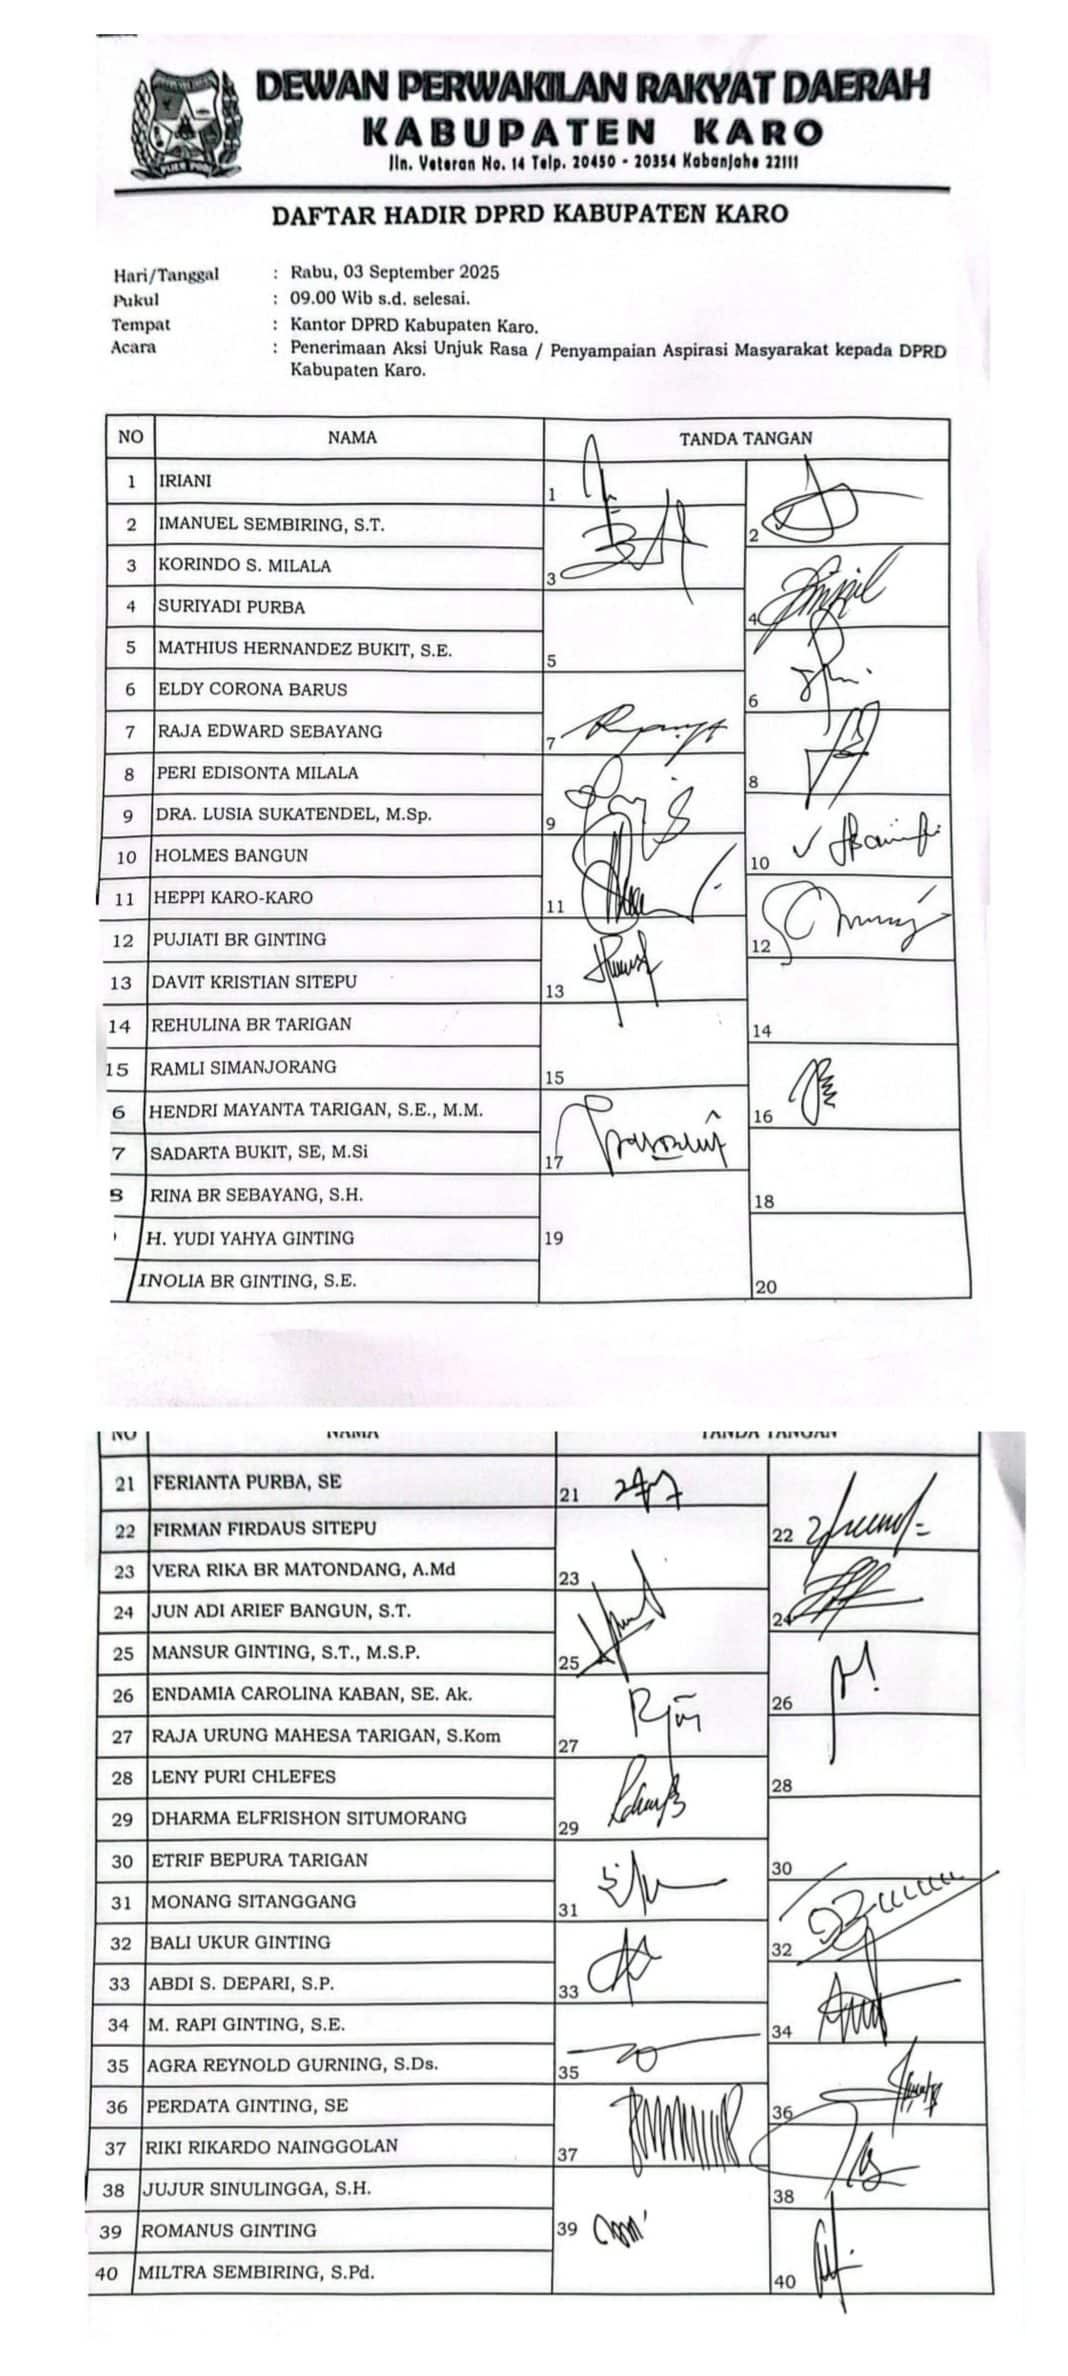 DEWAN PERWAKILAN RAKYAT DAERAH
KABUPATEN KARO
Jln. Veteran No. 14 Telp. 20450 - 20354 Kabanjahe 22111
DAFTAR HADIR DPRD KABUPATEN KARO
Hari/Tanggal : Rabu, 03 September 2025
Pukul : 09.00 Wib s.d. selesai.
Tempat : Kantor DPRD Kabupaten Karo.
Acara : Penerimaan Aksi Unjuk Rasa / Penyampaian Aspirasi Masyarakat kepada DPRD
Kabupaten Karo.
NO NAMA TANDA TANGAN
1 IRIANI 1
2 IMANUEL SEMBIRING, S.T. 2
3 KORINDO S. MILALA 3
4 SURIYADI PURBA 4
5 MATHIUS HERNANDEZ BUKIT, S.E. 5
6 ELDY CORONA BARUS 6
7 RAJA EDWARD SEBAYANG 7
8 PERI EDISONTA MILALA 8
9 DRA. LUSIA SUKATENDEL, M.Sp. 9
10 HOLMES BANGUN 10
11 HEPPI KARO-KARO 11
12 PUJIATI BR GINTING 12
13 DAVIT KRISTIAN SITEPU 13
14 REHULINA BR TARIGAN 14
15 RAMLI SIMANJORANG 15
6 HENDRI MAYANTA TARIGAN, S.E., M.M. 16
7 SADARTA BUKIT, SE, M.Si 17
8 RINA BR SEBAYANG, S.H. 18
H. YUDI YAHYA GINTING 19
INOLIA BR GINTING, S.E. 20
NO NAMA TANDA TANGAN
21 FERIANTA PURBA, SE 21
22 FIRMAN FIRDAUS SITEPU 22
23 VERA RIKA BR MATONDANG, A.Md 23
24 JUN ADI ARIEF BANGUN, S.T. 24
25 MANSUR GINTING, S.T., M.S.P. 25
26 ENDAMIA CAROLINA KABAN, SE. Ak. 26
27 RAJA URUNG MAHESA TARIGAN, S.Kom 27
28 LENY PURI CHLEFES 28
29 DHARMA ELFRISHON SITUMORANG 29
30 ETRIF BEPURA TARIGAN 30
31 MONANG SITANGGANG 31
32 BALI UKUR GINTING 32
33 ABDI S. DEPARI, S.P. 33
34 M. RAPI GINTING, S.E. 34
35 AGRA REYNOLD GURNING, S.Ds. 35
36 PERDATA GINTING, SE 36
37 RIKI RIKARDO NAINGGOLAN 37
38 JUJUR SINULINGGA, S.H. 38
39 ROMANUS GINTING 39
40 MILTRA SEMBIRING, S.Pd. 40